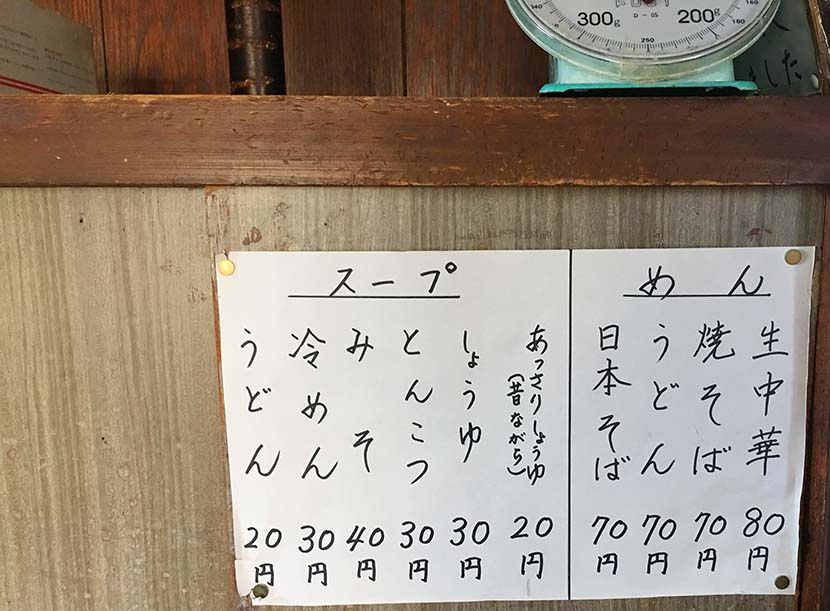 300g
200g
140
160
250
D-05
した
めん
生中華 80円
焼そば 70円
うどん 70円
日本そば 70円
スープ
あっさりしょうゆ
(昔ながら) 20円
しょうゆ 30円
とんこつ 30円
みそ 40円
冷めん 30円
うどん 20円